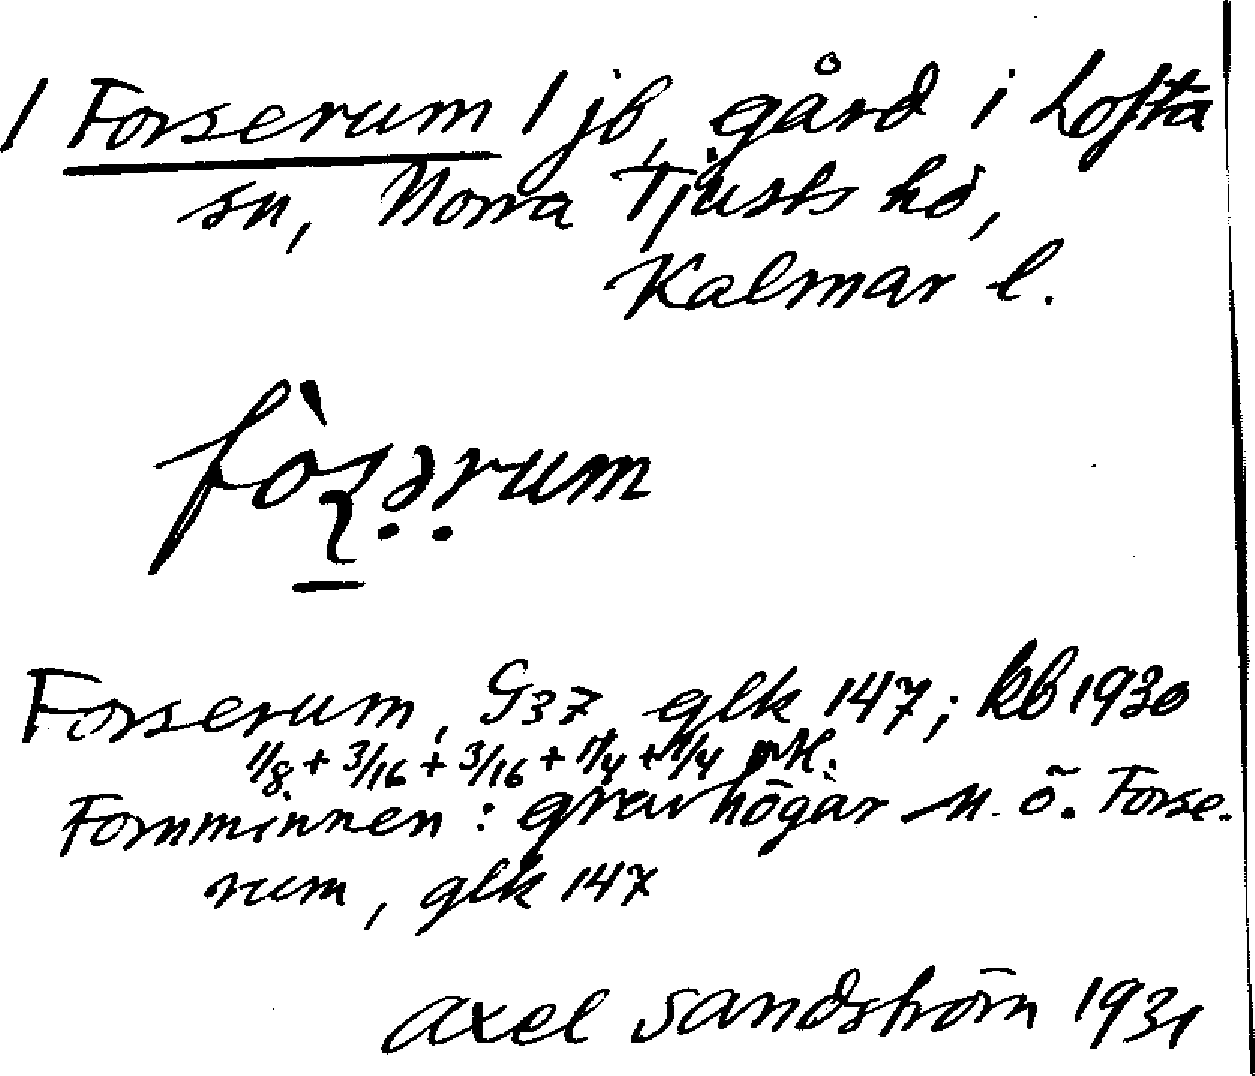 / Forserum / jb, gård i Lofta
sn, Norra Tjusts hd,
Kalmar l.
Forserum, G37, glk 147; kb 1930
1/8 + 3/16 + 3/16 + 1/4 + 1/4 mtl.
Fornminnen: gravhögar n. ö. Forse-
rum, glk 147
Axel Sandström 1931